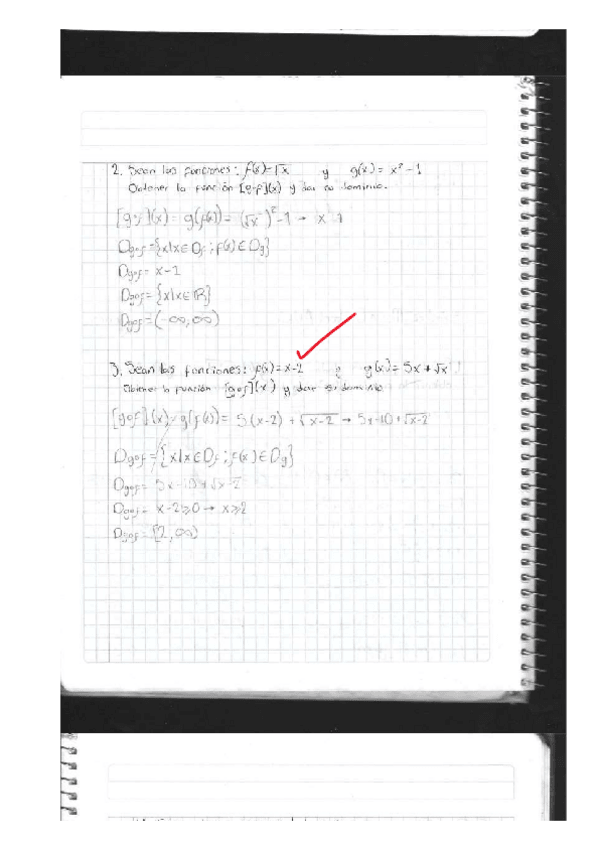 2. Sean las funciones: f(x)=√x y g(x) = x² - 1
Obtener la función [g∘f](x) y dar su dominio.
[g∘f](x) = g(f(x)) = (√x)² - 1 → x - 1
Dg∘f = {x|x ∈ Df ; f(x) ∈ Dg}
Dg∘f = x - 1
Dg∘f = {x|x ∈ ℝ}
Dg∘f = (-∞, ∞)
3. Sean las funciones: f(x) = x-2 y g(x) = 5x + √x
Obtener la función [g∘f](x) y dar su dominio
[g∘f](x) = g(f(x)) = 5(x-2) + √x-2 → 5x-10+√x-2
Dg∘f = {x|x ∈ Df ; f(x) ∈ Dg}
Dg∘f = 5x-10+√x-2
Dg∘f = x-2≥0 → x≥2
Dg∘f = [2, ∞)